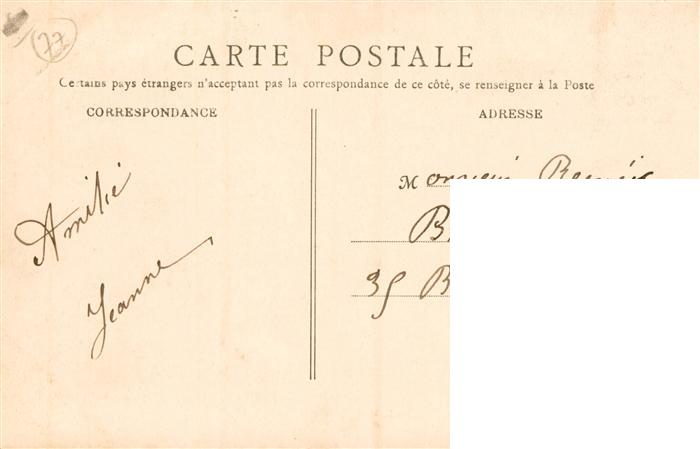 77
CARTE POSTALE
Certains pays étrangers n'acceptant pas la correspondance de ce côté, se renseigner à la Poste
CORRESPONDANCE
Amitié
Jeanne
ADRESSE
Monsieur
B
35 B